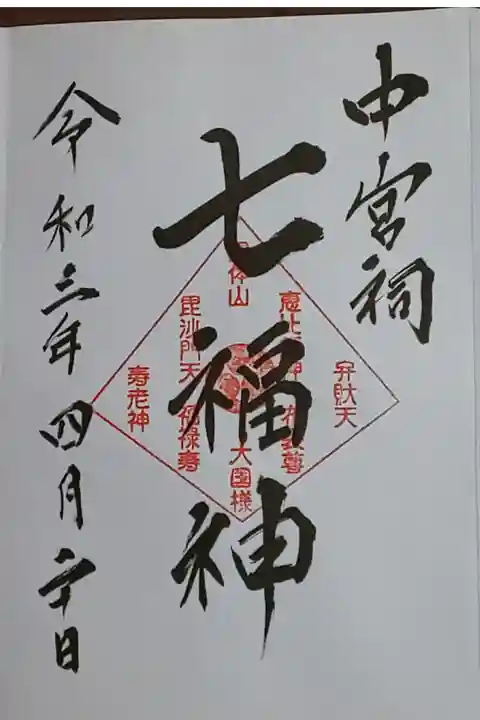 中宮祠
七福神
令和三年四月二十日
弁財天
布袋尊
大国様
毘沙門天
福禄寿
寿老神